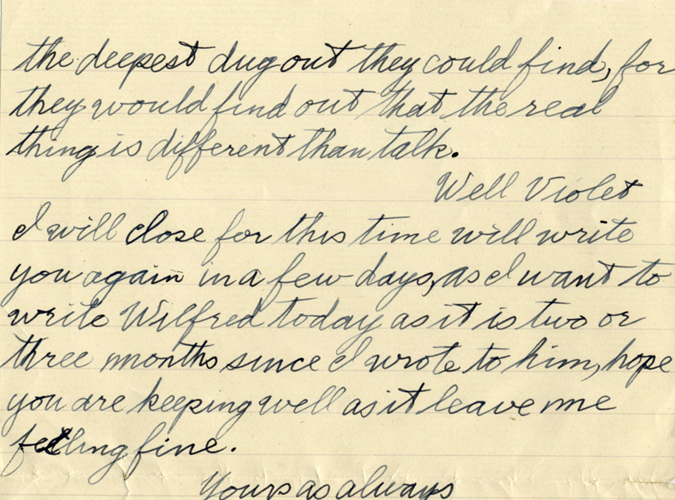 the deepest dug out they could find, for
they would find out that the real
thing is different than talk.
Well Violet
I will close for this time will write
you again in a few days, as I want to
write Wilfred today as it is two or
three months since I wrote to him, hope
you are keeping well as it leave me
feeling fine.
Yours as always